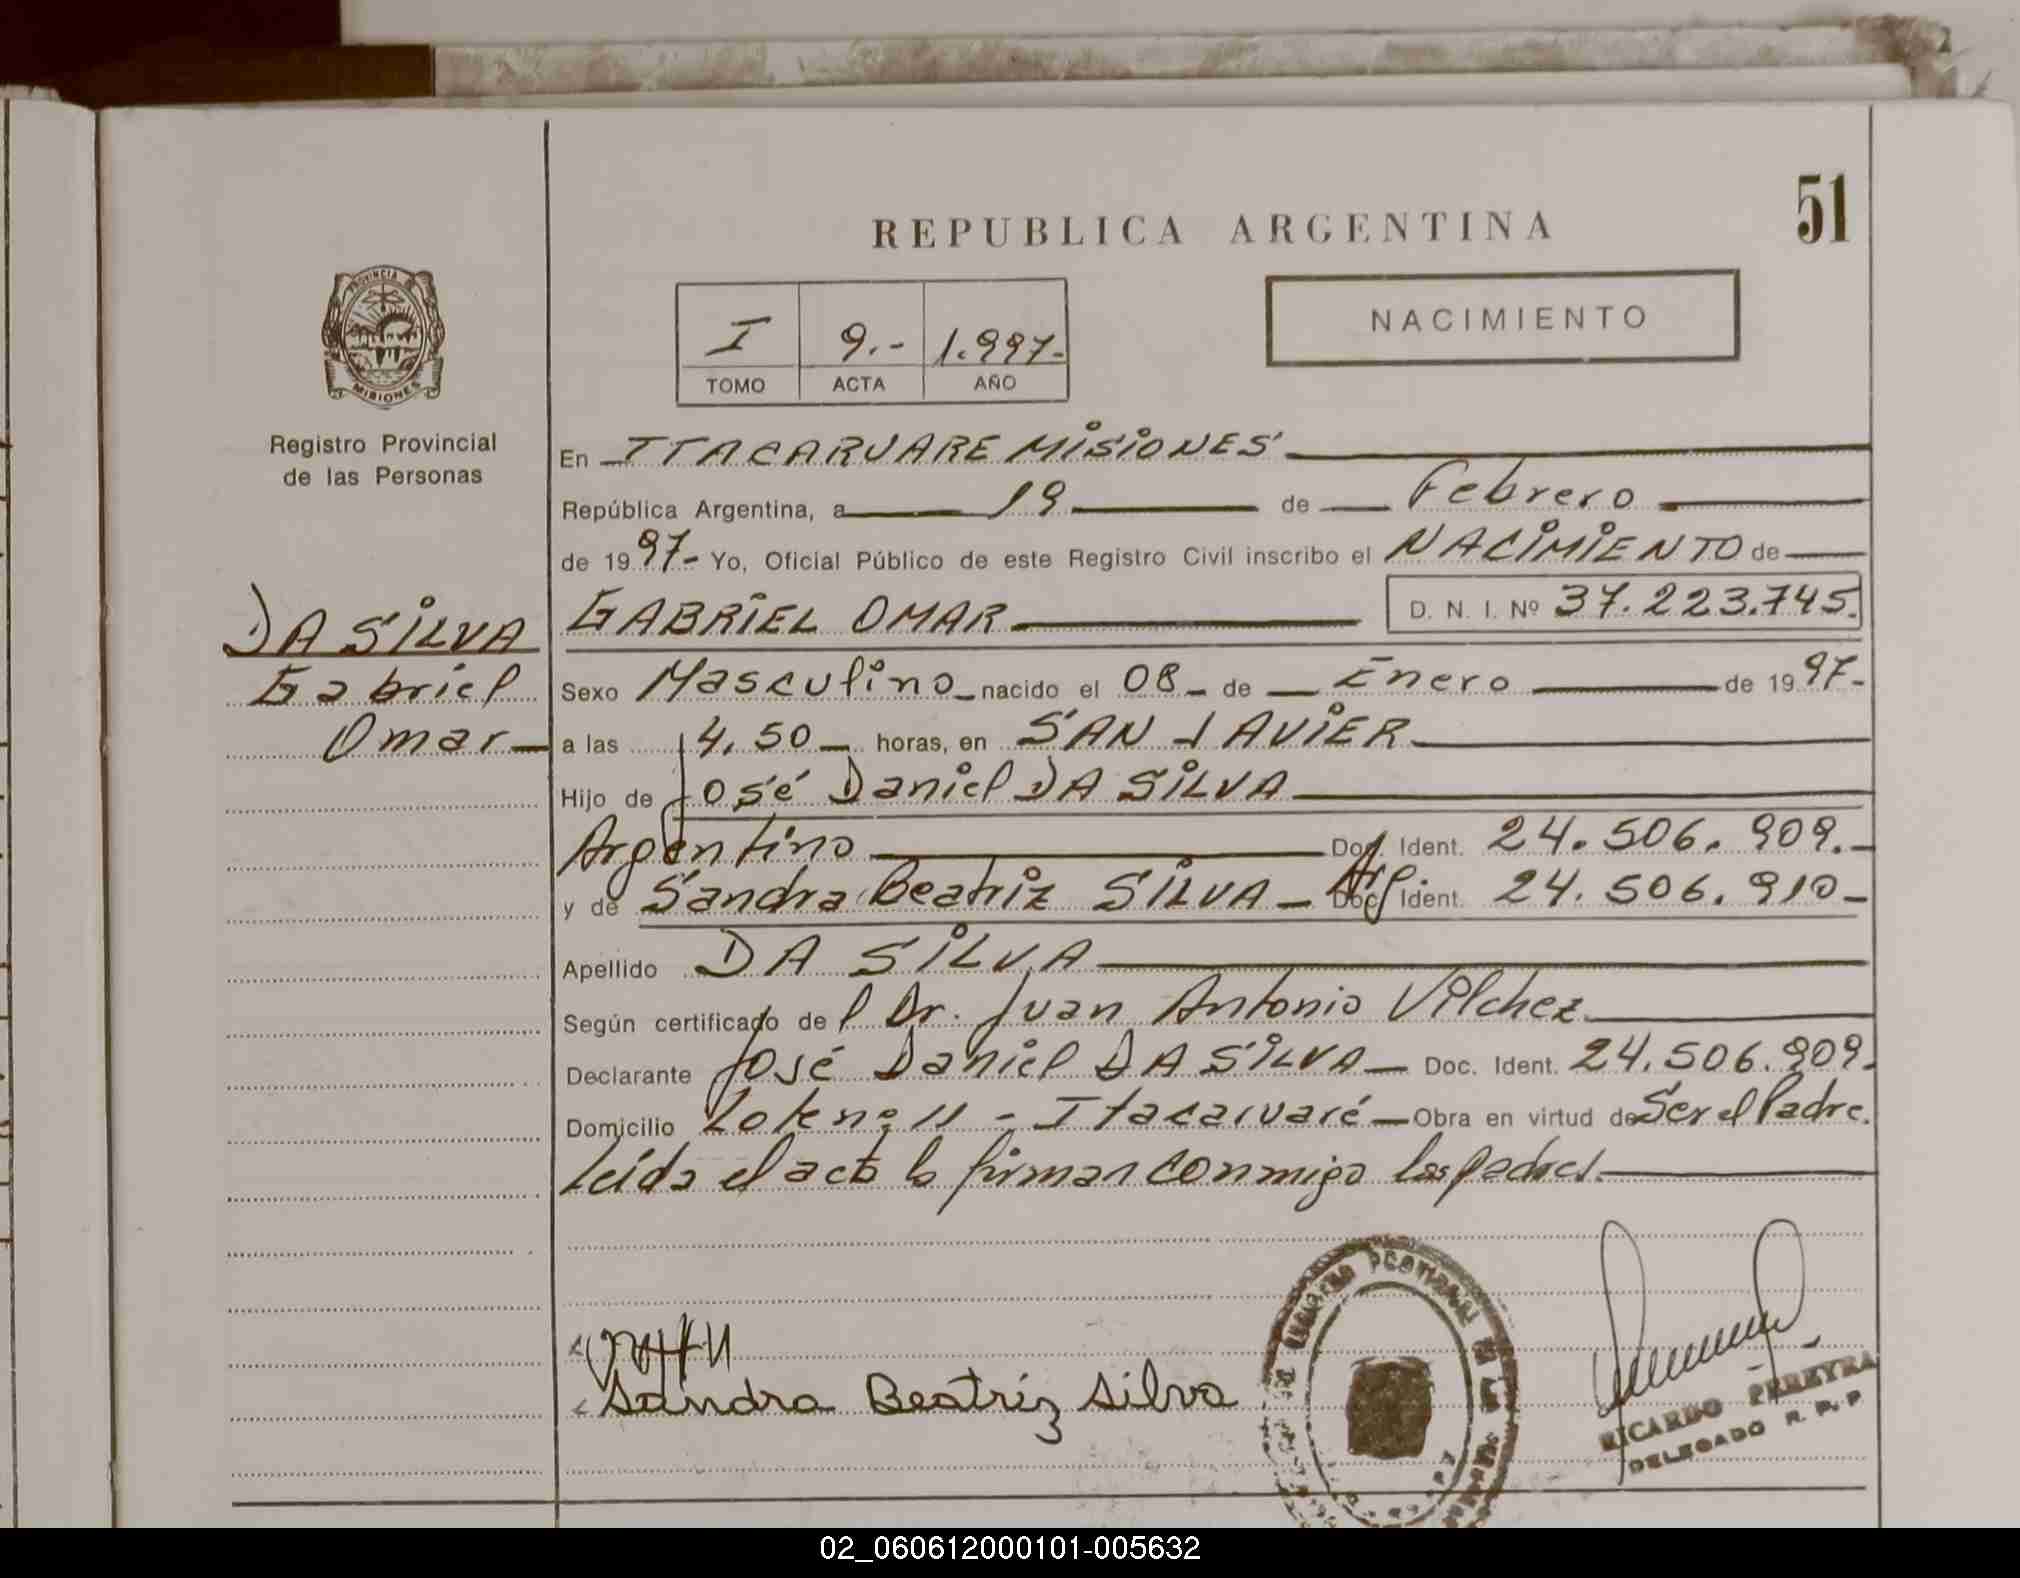 51
REPUBLICA ARGENTINA
PROVINCIA DE
MISIONES
Registro Provincial
de las Personas
NACIMIENTO
I 9.- 1.997-
TOMO ACTA AÑO
En ITACARUARE MISIONES
República Argentina, a 19 de Febrero
de 1997- Yo, Oficial Público de este Registro Civil inscribo el NACIMIENTO de
DA SILVA
Gabriel
Omar
GABRIEL OMAR D. N. I. Nº 37.223.745.
Sexo Masculino nacido el 08 de Enero de 1997-
a las 4,50 horas, en SAN JAVIER
Hijo de José Daniel DA SILVA
Argentino Doc. Ident. 24.506.909.-
y de Sandra Beatriz SILVA - Arg Doc. Ident. 24.506.910-
Apellido DA SILVA
Según certificado del Dr. Juan Antonio Vilchez
Declarante José Daniel DA SILVA - Doc. Ident. 24.506.909.
Domicilio Lote nº 11 - Itacaruaré - Obra en virtud de Ser el Padre.
Leída el acta la firman conmigo los padres.
Sandra Beatriz Silva
RICARDO PEREYRA
DELEGADO R. P. P
02_060612000101-005632